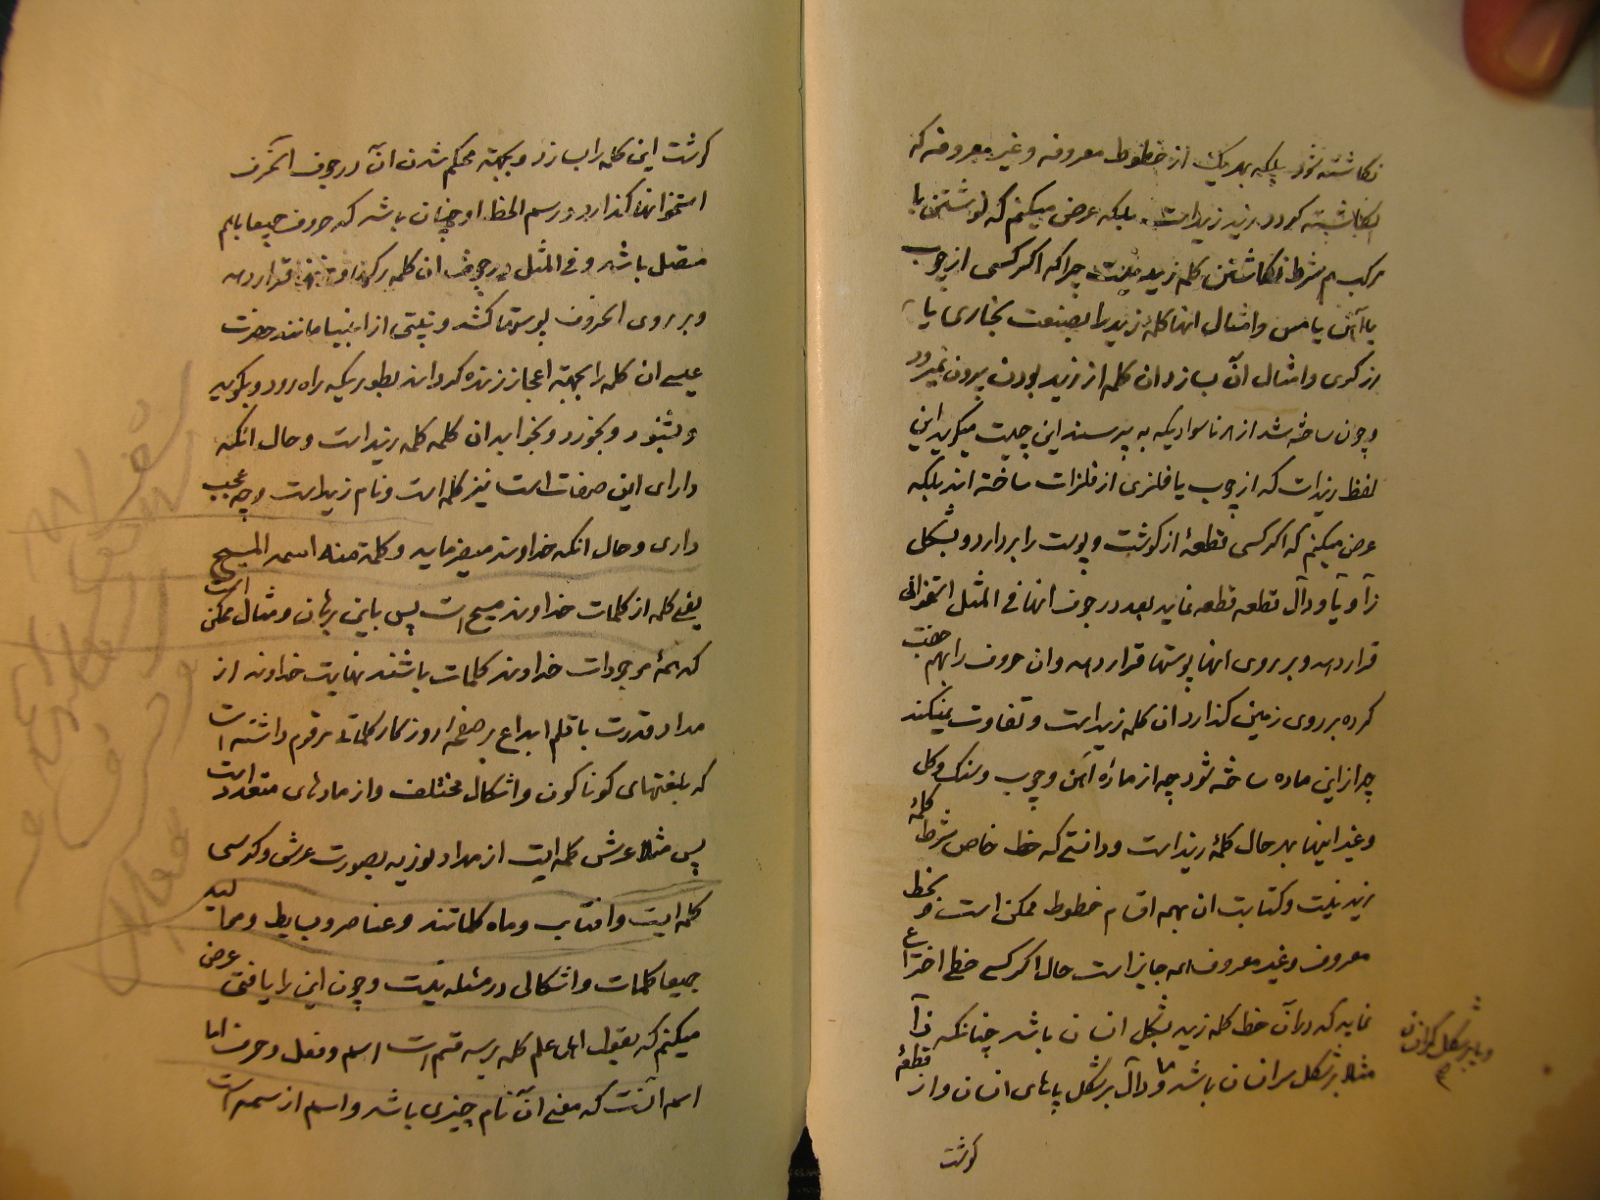 نکاشته شود بلکه بهر یک از خطوط معروفه و غیر معروفه که
نکاشته کردد زید زید است بلکه عرض میکنم که نوشتن با
مرکب هم شرط نکاشتن کلمه زید نیست چرا که اکر کسی از چوب
یا آهن یا مس و امثال انها کلمهٔ زید را بصنعت نجاری یا
زرکری و امثال آن بسازد ان کلمه از زید بودن بیرون نمیرود
و چون ساخته شد از هر باسوادیکه به پرسند این چیست میکوید این
لفظ زید است که از چوب یا فلزی از فلزات ساخته اند بلکه
عرض میکنم که اکر کسی قطعهٔ از کوشت و پوست را بردارد و بشکل
زآ و یآ و دآل قطعه قطعه نماید بعد در جوف انها فی المثل استخوانی
قرار دهد و بر روی انها پوستها قرار دهد و ان حروف را بهم جفت
کرده بر روی زمین کذارد ان کلمه زید است و تفاوت نمیکند
چه از این ماده ساخته شود چه از مادهٔ آهن و چوب و سنک و کل
و غیر اینها بهر حال کلمهٔ زید است و دانستی که خط خاص شرط کلمهٔ
زید نیست و کتابت ان بهمه اقسام خطوط ممکن است و بخط
معروف و غیر معروف همه جایز است حال اکر کسی خطی اختراع
نماید که در آن خط کلمه زید بشکل انسان باشد چنانکه زآ
مثلا بر شکل سر انسان باشد و دآل بر شکل پاهای انسان و از قطعهٔ
و یا بر شکل کردن
کوشت
کوشت این کلمه را بسازد و بجهة محکم شدن آن در جوف آنحرف
استخوانها کذارد و رسم الخط او چنان باشد که حروف جمیعا بهم
متصل باشد و فی المثل در جوف ان کلمه قرار دهد
و بر روی انحروف پوستها کشد و نبیئی از انبیا مانند حضرت
عیسی ان کلمه را بجهة اعجاز زنده کرداند بطوریکه راه رود و بکوید
و بشنود و بخورد و بخوابد ان کلمه کلمه زید است و حال انکه
دارای این صفات است نیز کلمه است و نام زید است و چه عجب
داری و حال انکه خداوند میفرماید و کلمة منه اسمه المسیح
یعنی کلمه از کلمات خداوند مسیح است پس باین برهان و مثال ممکن است
که همهٔ موجودات خداوند کلمات باشند نهایت خداوند از
مداد قدرت با قلم ابداع بر صفحهٔ روزکار کلماتی مرقوم داشته است
که بلغتهای کوناکون و اشکال مختلف و از مادهای متعدد است
پس مثلا عرش کلمه ایست از مداد نوریه بصورت عرش و کرسی
کلمه ایست و افتاب و ماه کلماتند و عناصر و بسایط و موالید
جمیعا کلمات و اشکالی در مسئله نیست و چون این را یافتی عرض
میکنم که بقول اهل علم کلمه بر سه قسم است اسم و فعل و حرف اما
اسم آنست که معنی آن نام چیزی باشد و اسم از سمه است